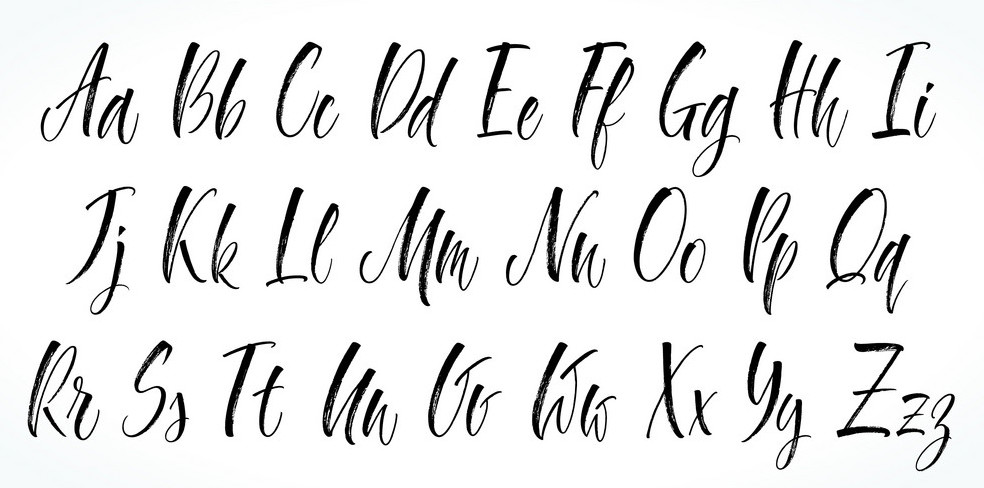 Aa Bb Cc Dd Ee Ff Gg Hh Ii
Jj Kk Ll Mm Nn Oo Pp Qq
Rr Ss Tt Uu Vv Ww Xx Yy Zzz